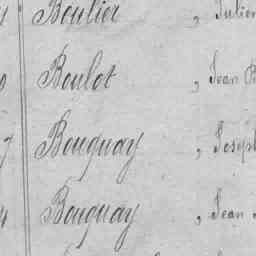 Boulier , Julien
Boulot , Jean B
Bouguay , Joseph
Bouguay , Jean